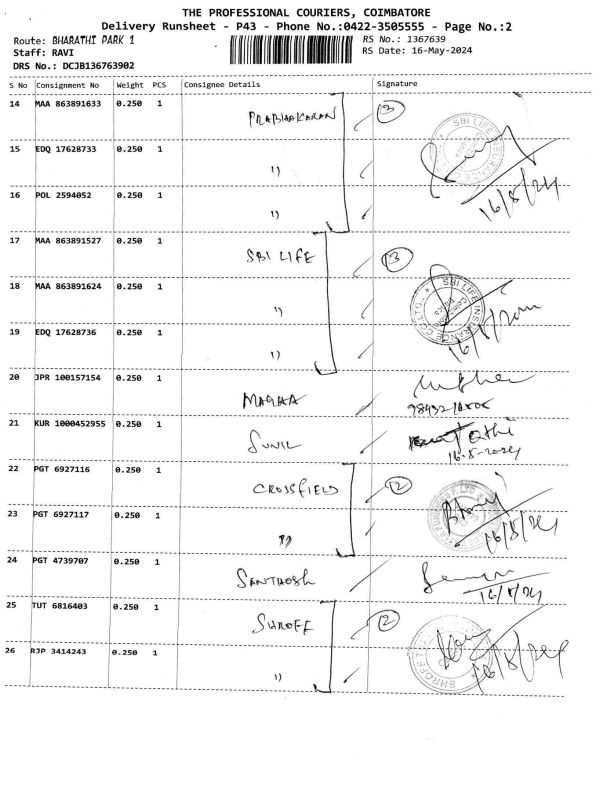 THE PROFESSIONAL COURIERS, COIMBATORE
Delivery Runsheet - P43 - Phone No.:0422-3505555 - Page No.:2
Route: BHARATHI PARK 1
RS No.: 1367639
Staff: RAVI
RS Date: 16-May-2024
DRS No.: DCJB136763902
S No Consignment No Weight PCS Consignee Details Signature
14 MAA 863891633 0.250 1 PRABHAKARAN 3
SBI LIFE INSURANCE
15 EDQ 17628733 0.250 1 ")
16 POL 2594052 0.250 1 ") 16/5/24
17 MAA 863891527 0.250 1 SBI LIFE 3
SBI LIFE INSURANCE CO. LTD.
18 MAA 863891624 0.250 1 ")
19 EDQ 17628736 0.250 1 ")
20 JPR 100157154 0.250 1 MAGHA
21 KUR 1000452955 0.250 1 SUNIL
16-5-2024
22 PGT 6927116 0.250 1 CROSSFIELD 2
23 PGT 6927117 0.250 1 ") 16/5/24
24 PGT 4739707 0.250 1 SANTHOSH
16/5/24
25 TUT 6816403 0.250 1 SHROFF 2
26 RJP 3414243 0.250 1 ") 16/5/24
SHROFF